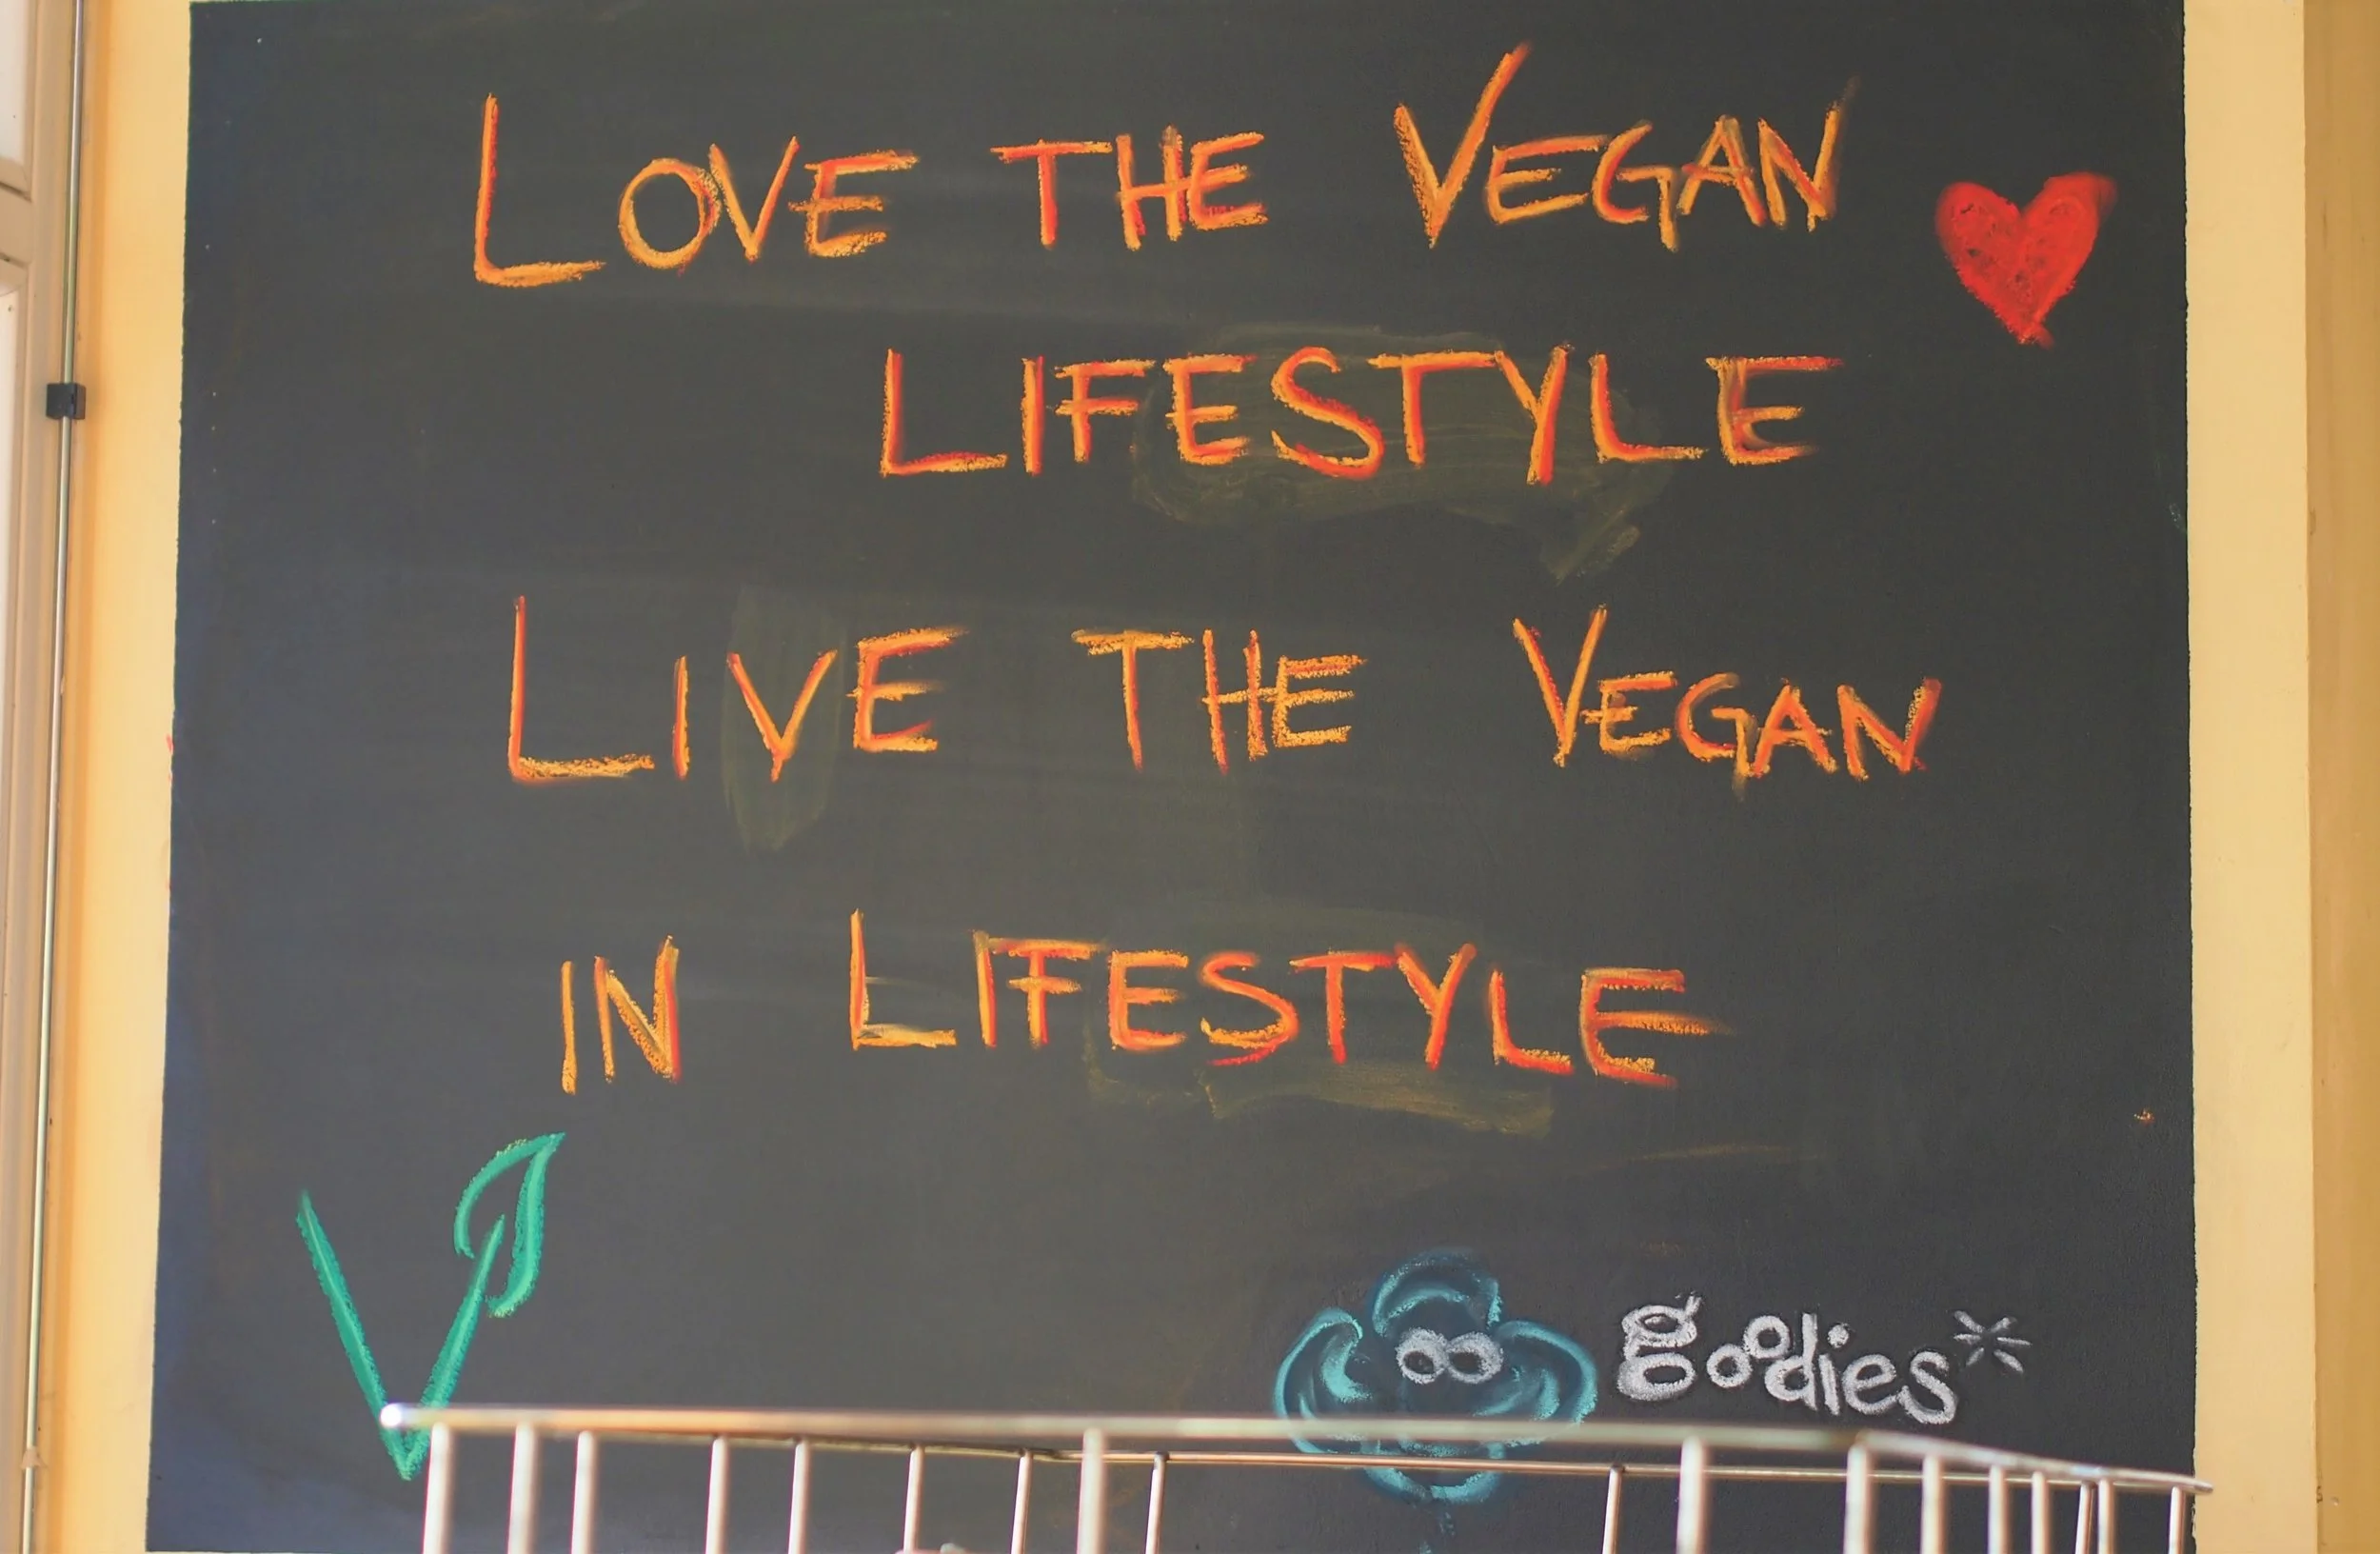 LOVE THE VEGAN
LIFESTYLE
LIVE THE VEGAN
IN LIFESTYLE
V
goodies